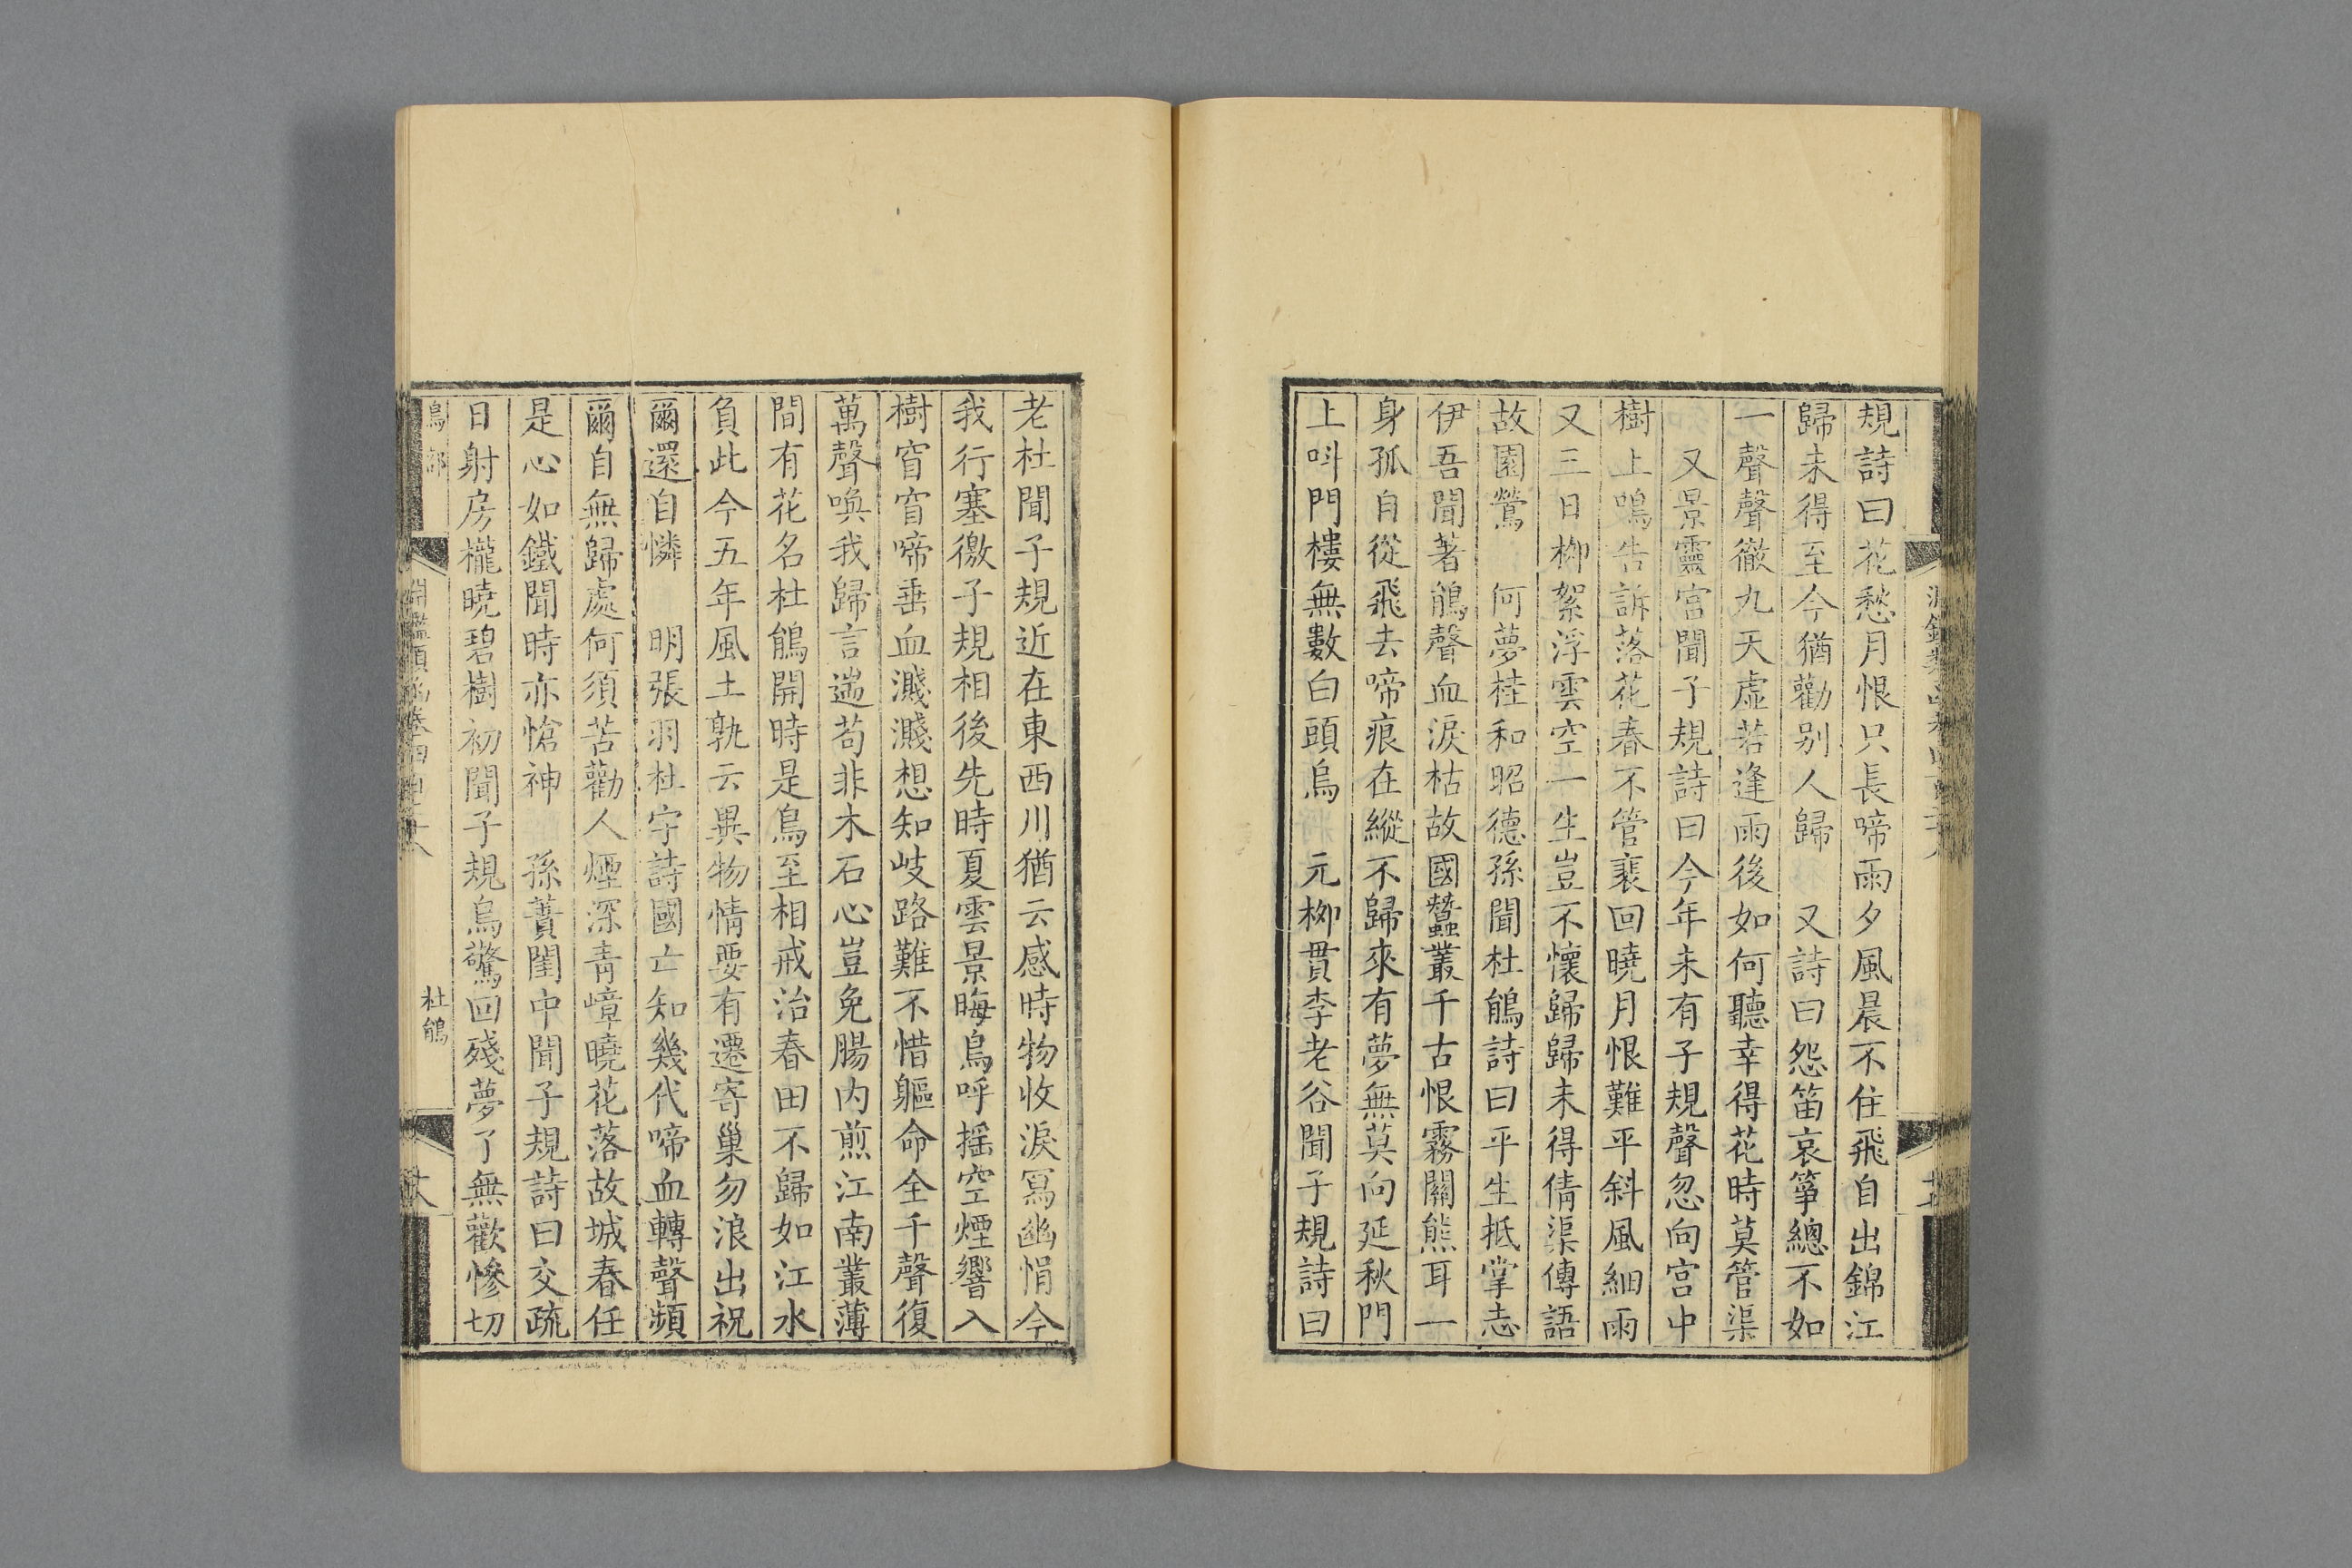 規詩曰花愁月恨只長啼雨夕風晨不住飛自出錦江
歸未得至今猶勸別人歸　又詩曰怨笛哀箏總不如
一聲聲徹九天虛若逢雨後如何聽幸得花時莫管渠
又景靈宮聞子規詩曰今年未有子規聲忽向宮中
樹上鳴告訴落花春不管裵回曉月恨難平斜風細雨
又三日柳絮浮雲空一生豈不懷歸歸未得倩渠傳語
故園鶯　何夢桂和昭德孫聞杜鵑詩曰平生抵掌志
伊吾聞著鵑聲血淚枯故國蠶叢千古恨霧關熊耳一
身孤自從飛去啼痕在縱不歸來有夢無莫向延秋門
上呌門樓無數白頭烏　元栁貫李老谷聞子規詩曰
老杜聞子規近在東西川猶云感時物收淚冩幽悁今
我行塞徼子規相後先時夏雲景晦鳥呼摇空煙響入
樹窅窅啼垂血濺濺想知岐路難不惜軀命全千聲復
萬聲喚我歸言遄苟非木石心豈免腸内煎江南叢薄
間有花名杜鵑開時是鳥至相戒治春田不歸如江水
負此今五年風土孰云異物情要有遷寄巢勿浪出祝
爾還自憐　明張羽杜宇詩國亡知幾代啼血轉聲頻
爾自無歸處何須苦勸人煙深青嶂曉花落故城春任
是心如鐵聞時亦愴神　孫蕡閨中聞子規詩曰交疏
日射房櫳曉碧樹初聞子規烏驚回殘夢了無歡慘切
鳥部
淵鑑類函卷四百二十八
杜鵑